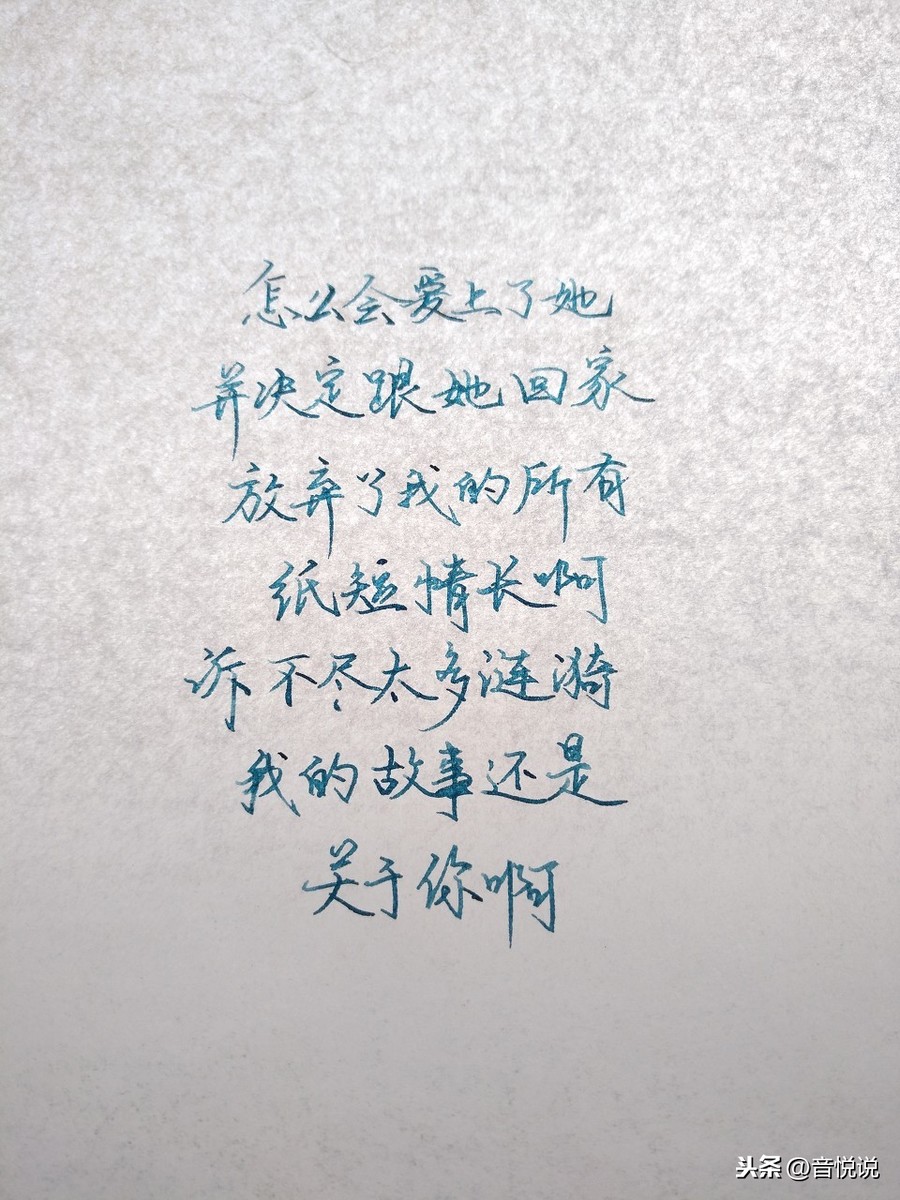 怎么会爱上了她
并决定跟她回家
放弃了我的所有
纸短情长啊
诉不尽太多涟漪
我的故事还是
关于你啊
头条 @音悦说